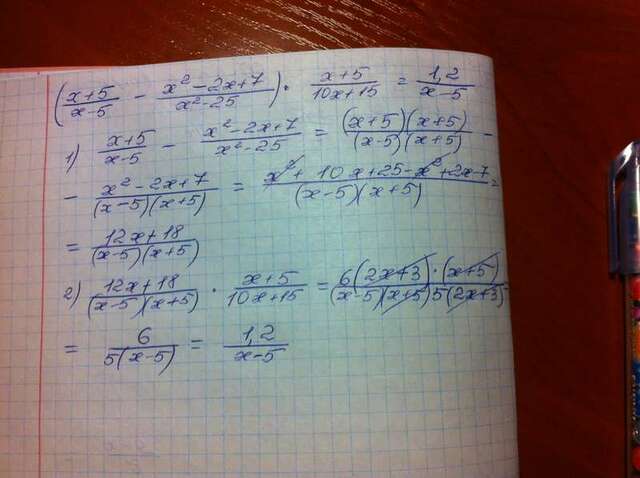 (x+5/x-5 - x²-2x+7/x²-25) · x+5/10x+15 = 1,2/x-5
1) x+5/x-5 - x²-2x+7/x²-25 = (x+5)(x+5)/(x-5)(x+5) -
- x²-2x+7/(x-5)(x+5) = x²+10x+25-x²+2x-7/(x-5)(x+5) =
= 12x+18/(x-5)(x+5)
2) 12x+18/(x-5)(x+5) · x+5/10x+15 = 6(2x+3)·(x+5)/(x-5)(x+5)5(2x+3) =
= 6/5(x-5) = 1,2/x-5